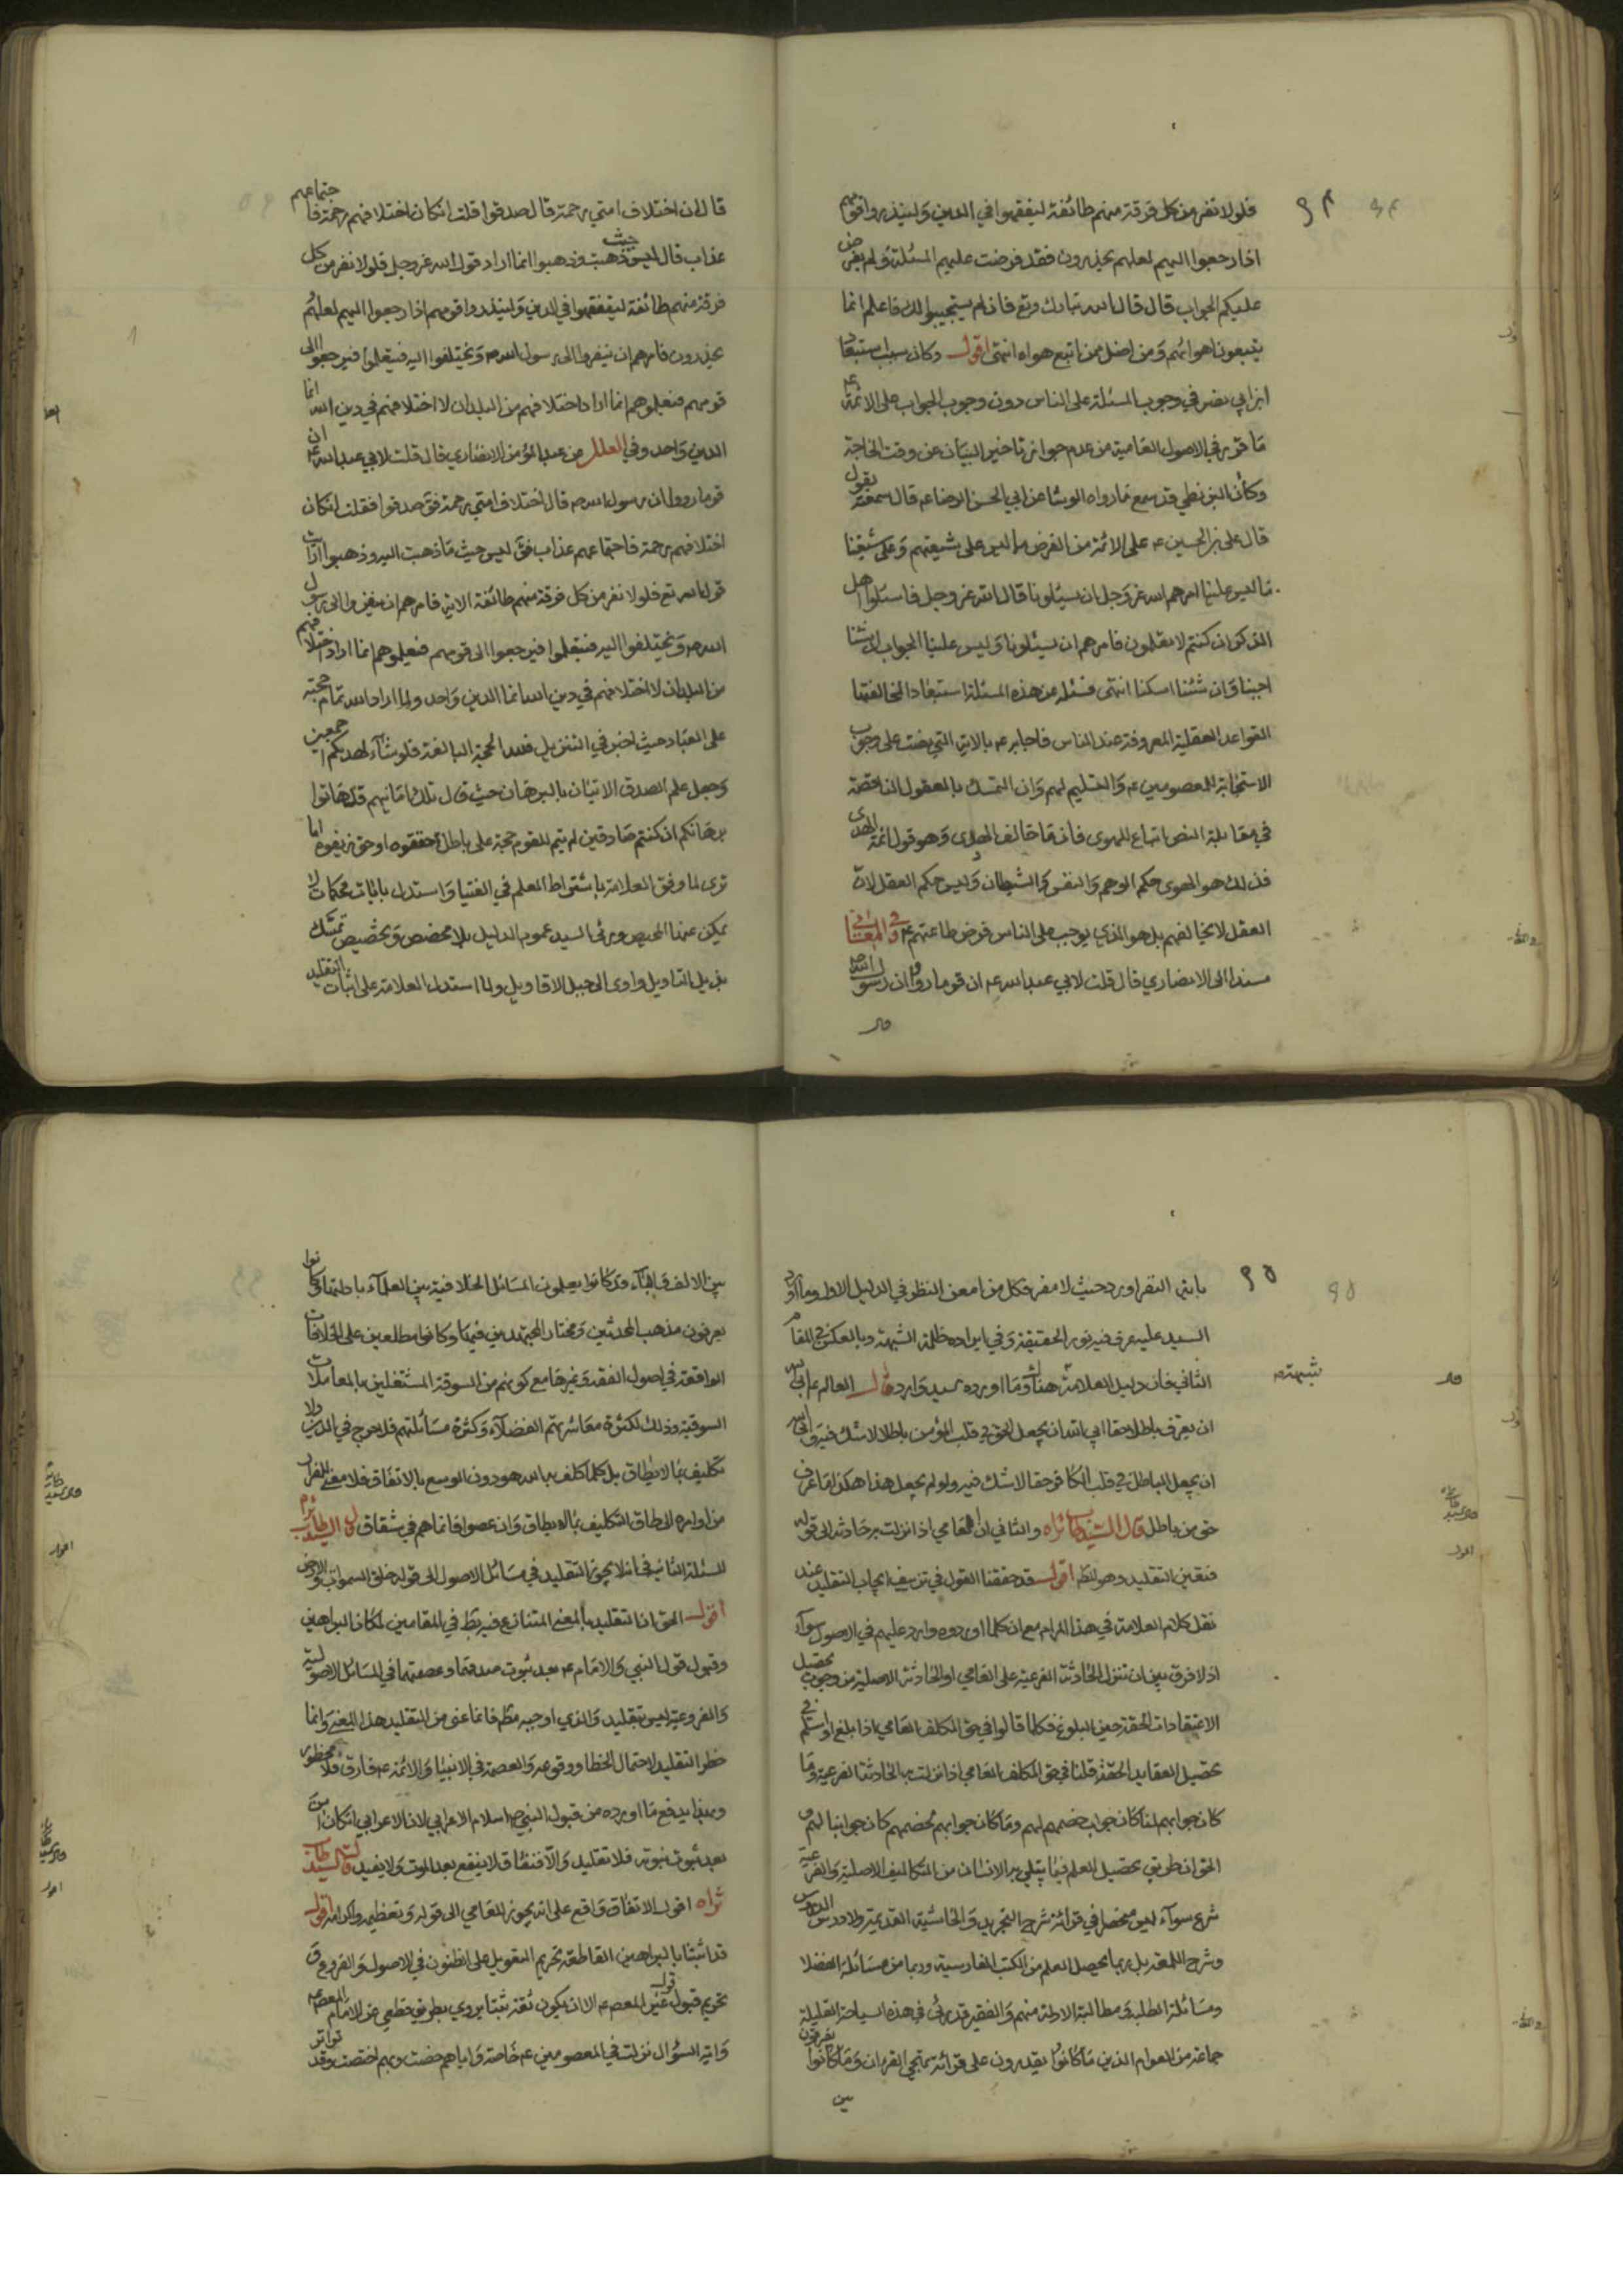 فلولا نفر من كل فرقة منهم طائفة ليتفقهوا في الدين ولينذروا قومهم
اذا رجعوا اليهم لعلهم يحذرون فقد فرضت عليهم المسئلة ولم يفرض
عليكم الجواب قال قال الله تبارك وتع فان لم يستجيبوا لك فاعلم انما
يتبعون اهوائهم ومن اضل ممن اتبع هواه انتهى اقول وكان سبب استبعاد
ابن ابي نصر في وجوب المسئلة على الناس دون وجوب الجواب على الائمة ع
ما قرر في الاصول العامية من عدم جواز تاخير البيان عن وقت الحاجة
وكأن البزنطي قد سمع ما رواه الوشا عن ابي الحسن الرضا ع قال سمعته يقول
قال علي بن الحسين ع على الائمة من الفرض ما ليس على شيعتهم وعلى شيعتنا
ما ليس علينا امرهم الله عز وجل ان يسئلونا قال الله عز وجل فاسئلوا اهل
الذكر ان كنتم لا تعلمون فامرهم ان يسئلونا وليس علينا الجواب ان شئنا
اجبنا وان شئنا امسكنا انتهى فسئله عن هذه المسئلة استبعادا لمخالفتها
القواعد العقلية المعروفة عند الناس فاجابه ع بالاية التي نصت على وجوب
الاستجابة للمعصومين ع والتسليم لهم وان التمسك بالعقول الناقصة
في مقابلة النص اتباع للهوى فان ما خالف الهدى وهو قول ائمة الهدى
فذلك هو الهوى حكم الوهم والنفس والشيطان وليس حكم العقل لان
العقل لا يخالفهم بل هو الذي يوجب على الناس فرض طاعتهم ع وفي المعاني
مسندا الى الانصاري قال قلت لابي عبد الله ع ان قوما رووا ان رسول الله ص
قال ان اختلاف امتي رحمة قال صدقوا قلت ان كان اختلافهم رحمة فاجتماعهم
عذاب قال ليس حيث ذهبت وذهبوا انما اراد قول الله عز وجل فلولا نفر من كل
فرقة منهم طائفة ليتفقهوا في الدين ولينذروا قومهم اذا رجعوا اليهم لعلهم
يحذرون فامرهم ان ينفروا الى رسول الله ص ويختلفوا اليه فيتعلموا فيرجعوا الى
قومهم فيعلموهم انما اراد اختلافهم من البلدان لا اختلافهم في دين الله انما
الدين واحد وفي العلل عن عبد المؤمن الانصاري قال قلت لابي عبد الله ع ان
قوما رووا ان رسول الله ص قال اختلاف امتي رحمة فق صدقوا فقلت ان كان
اختلافهم رحمة فاجتماعهم عذاب فق ليس حيث ما ذهبت اليه وذهبوا اراد
قول الله تع فلولا نفر من كل فرقة منهم طائفة الاية فامرهم ان ينفروا الى رسول
الله ص ويختلفوا اليه فيتعلموا فيرجعوا الى قومهم فيعلموهم انما اراد اختلافهم
من البلدان لا اختلافهم في دين الله انما الدين واحد ولما اراد الله تمام حجته
على العباد حيث اخبر في التنزيل فلله الحجة البالغة فلو شآء لهديكم اجمعين
وجعل علم الصدق الاتيان بالبرهان حيث قال تلك امانيهم قل هاتوا
برهانكم ان كنتم صادقين لم يتم للقوم حجة على باطل حققوه او حق زيفوه اما
ترى لما وفق العلامة باشتراط العلم في الفتيا واستدل بايات محكمات لا
يمكن عنها المحيص وراى السيد عموم الدليل بلا مخصص وتخصيص تمسك
بذيل التاويل واوى الى جبل الاقاويل ولما استدل العلامة على اثبات التقليد
باية النفر اورد حيث لا مفر فكل من امعن النظر في الدليل الاول وما اورد
السيد عليه عرف فيه نور الحقيقة وفي ايراده ظلمة الشبهة وبالعكس في المقام
الثاني فان دليل العلامة هناك وما اورده سيد وارد قال العالم ع ابى الله
ان يعرف باطلا حقا ابى الله ان يجعل الحق في قلب المؤمن باطلا لا شك فيه وابى الله
ان يجعل الباطل في قلب الكافر حقا لا شك فيه ولو لم يجعل هذا هكذا ما عرف
حق من باطل قال السيد طاب ثراه والثاني ان العامي اذا نزلت به حادثة الى قوله
فتعين التقليد وهو المط اقول قد حققنا القول في تزييف ايجاب التقليد عند
نقل كلام العلامة في هذا المرام مع ان كلما اوردوه وارد عليهم في الاصول سوآء
اذ لا فرق بين ان تنزل الحادثة الفرعية على العامي او الحادثة الاصلية من وجوب تحصيل
الاعتقادات الحقة حين البلوغ فكلما قالوا في حق المكلف العامي اذا بلغ او اسلم في
تحصيل العقايد الحقة قلنا في حق المكلف العامي اذا نزلت به الحادثة الفرعية وما
كان جوابهم لنا كان جواب خصمهم لهم وما كان جوابهم لخصمهم كان جوابنا لهم و
الحق ان طريق تحصيل العلم فيما يبتلي به الانسان من التكاليف الاصلية والفرعية
شرع سوآء ليس منحصر في قرائة شرح التجريد والحاشية القديمة ولا دروس
وشرح اللمعة بل ربما يحصل العلم من الكتب الفارسية وربما من مسائلة الفضلا
ومسائلة الطلبة ومطالبة الادلة منهم والفقير قد راى في هذه السياحة القليلة
جماعة من العوام الذين ما كانوا يقدرون على قرائة القران وما كانوا يفرقون
بين الالف والبآء وقد كانوا يعلمون المسائل الخلافية بين العلمآء وكانوا
يعرفون مذهب المحدثين ومختار المجتهدين فيها وكانوا مطلعين على الخلافات
الواقعة في اصول الفقه وغيرها مع كونهم من السوقة المشتغلين بالمعاملات
السوقية وذلك لكثرة معاشرتهم الفضلآء وكثرة مسائلتهم فلا حرج في الدين ولا
تكليف بما لا يطاق بل كلما كلف به الله هو دون الوسع بالاتفاق فلا معنى للفرار
من اوامره الى طاق التكليف بما لا يطاق وان عصوا فانما هم في شقاق قال السيد طاب ثراه
المسئلة الثانية في انه لا يجوز التقليد في مسائل الاصول الى قوله خلق السموات والارض
اقول الحق ان التقليد بالمعنى المتنازع فيه بط في المقامين لمكان البراهين
وقبول قول النبي والامام ع بعد ثبوت صدقهما وعصمتهما في المسائل الاصولية
والفروعية ليس تقليد والذي اوجبه مط فانما عنى من التقليد هذا المعنى وانما
حظر التقليد لاحتمال الخطا ووقوعه والعصمة في الانبيا والائمة ع فارق فلا محظور
وبهذا يدفع ما اورده من قبول النبي ص اسلام الاعرابي لان الاعرابي ان كان امن
بعد ثبوت نبوته فلا تقليد والا فنفاق لا ينفع بعد الموت ولا يفيد قال السيد طاب
ثراه اقول الاتفاق واقع على انه يجوز للعامي الى قوله وتعظيمه واكرامه اقول
قد اثبتنا بالبراهين القاطعة تحريم التعويل على الظنون في الاصول والفروع و
تحريم قبول قول غير المعصوم ع الا ان يكون ثقة ثبتا يروي بطريق قطعي عن الامام المعصوم ع
واية السؤال نزلت في المعصومين ع خاصة واياهم خصت وبهم اختصت وقد تواتر